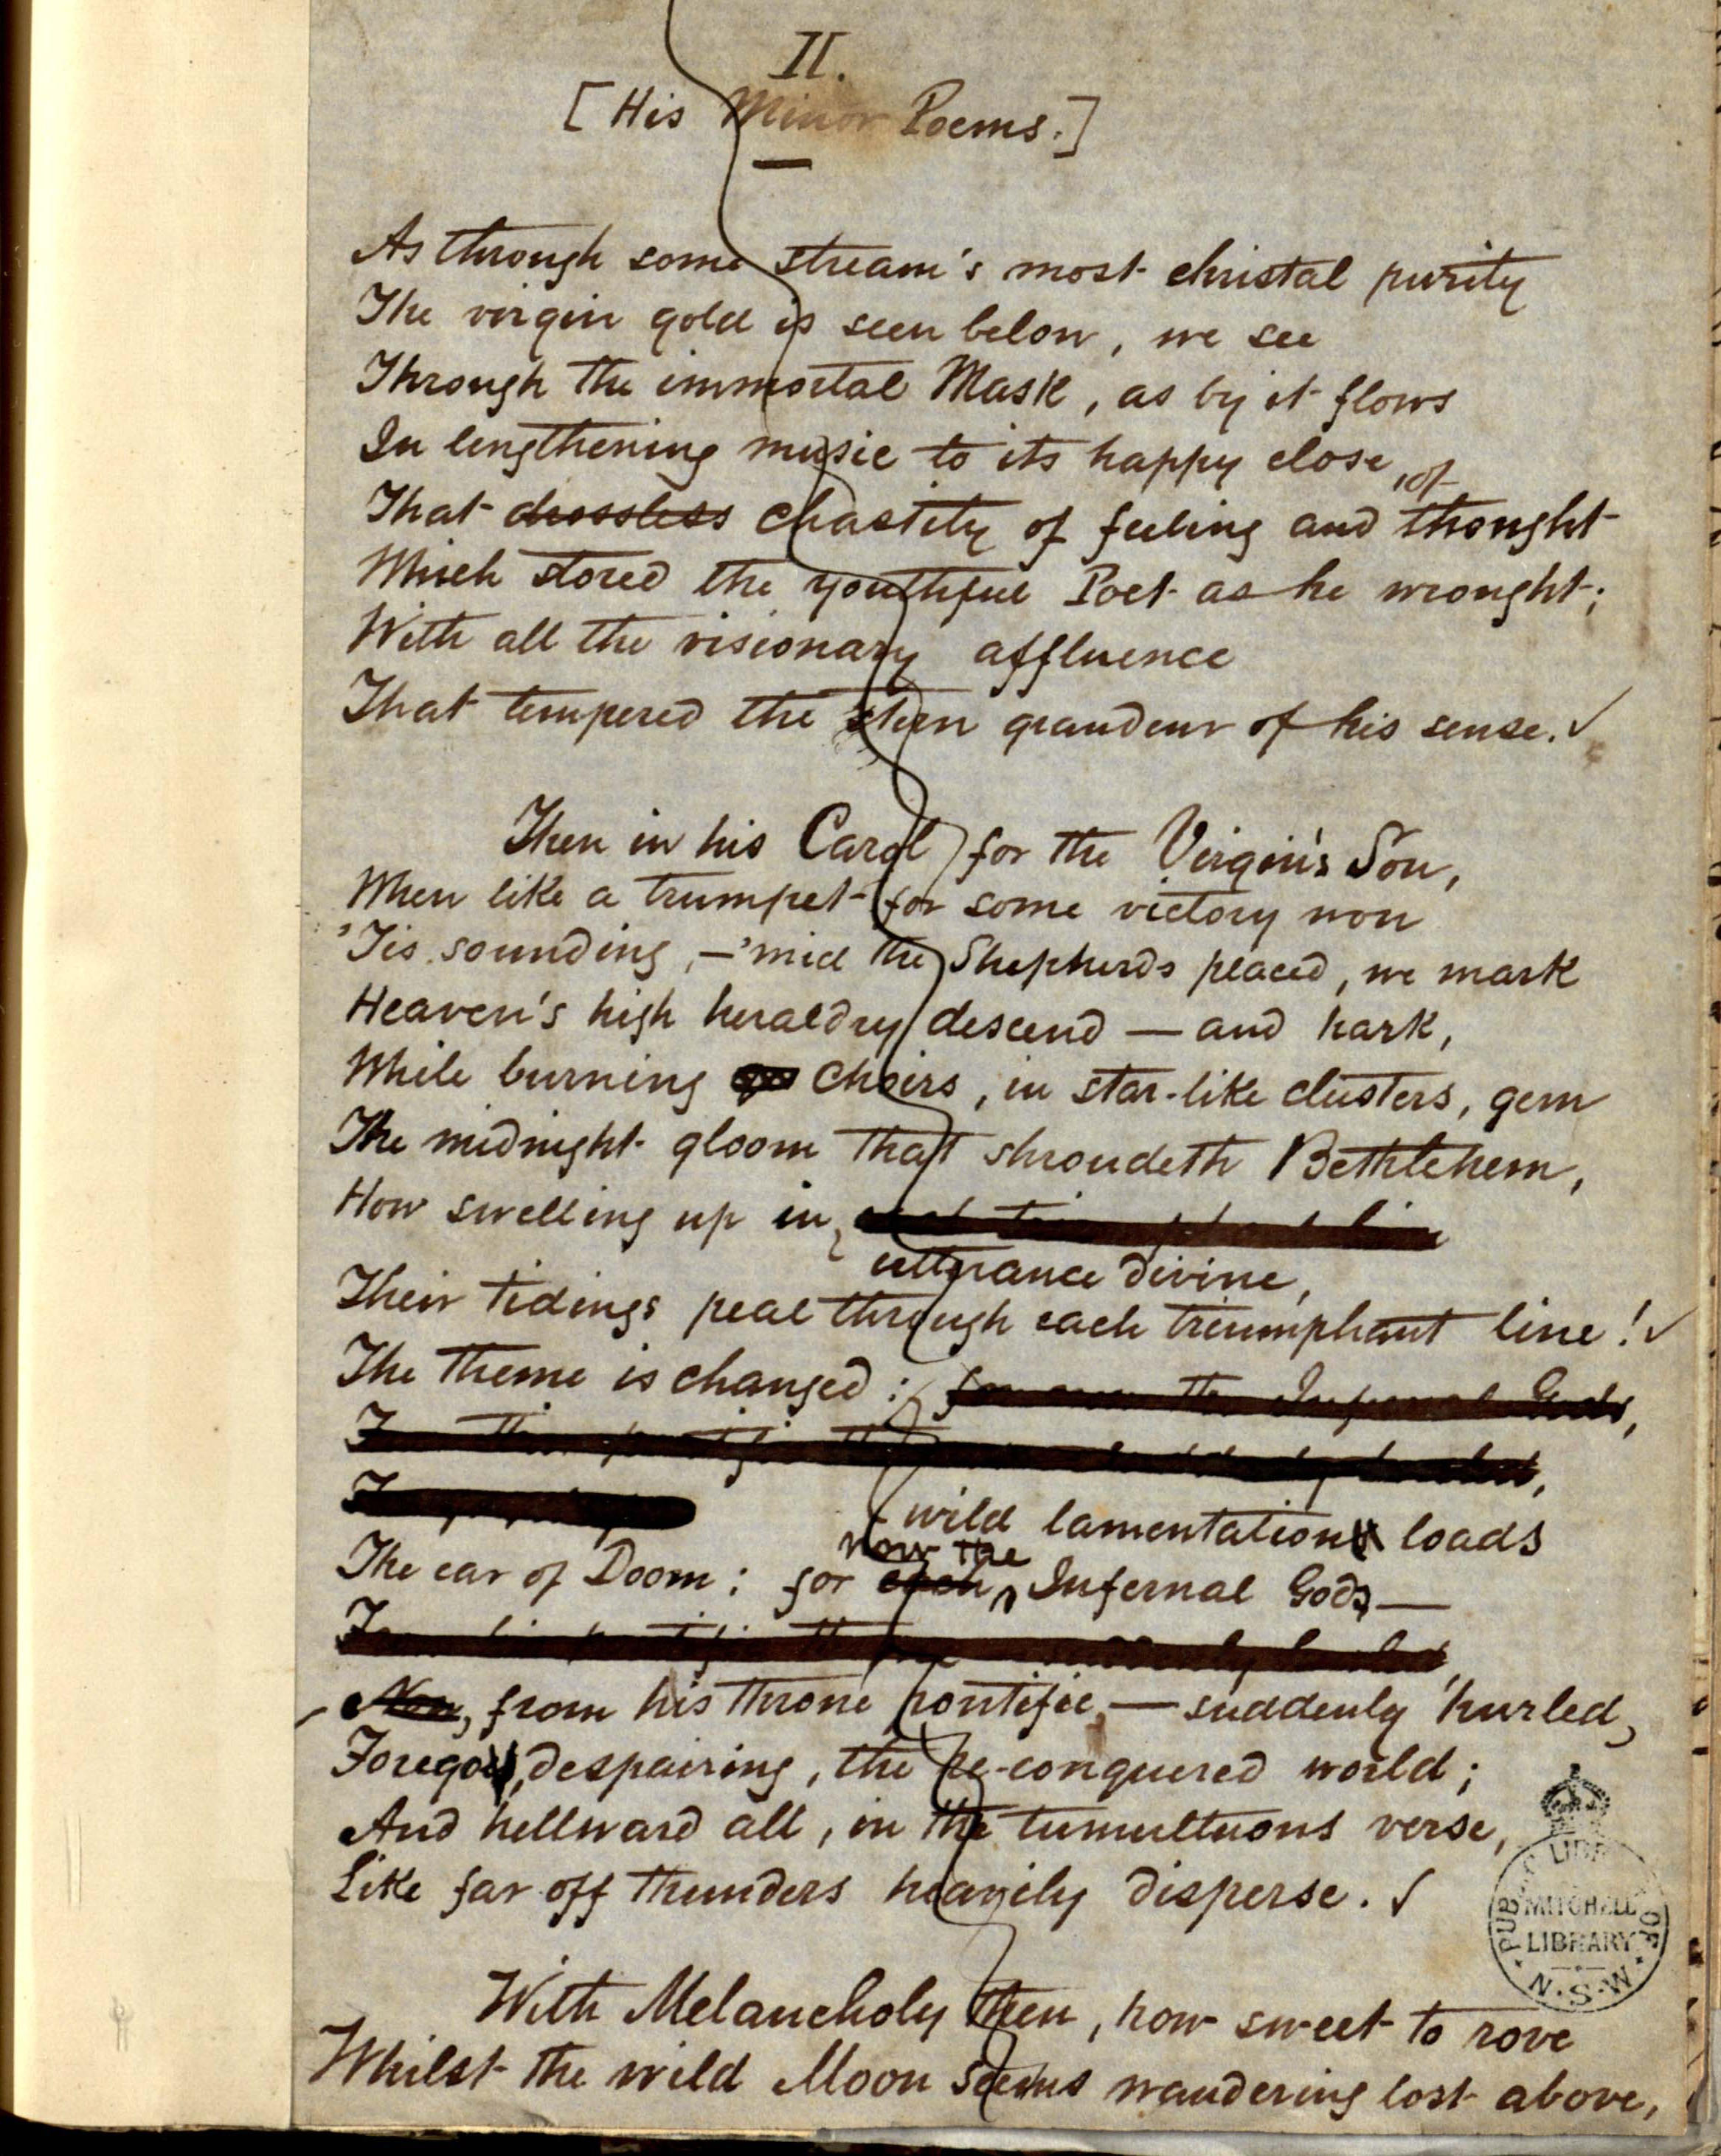 II.
[His Minor Poems.]
As through some stream's most christal purity
The virgin gold is seen below, we see
Through the immortal Mask, as by it flows
In lengthening music to its happy close,
of
That drossless chastity of feeling and thought
Which stored the youthful Poet as he wrought;
With all the visionary affluence
That tempered the stern grandeur of his sense.
Then in his Carol for the Virgin's Son,
When like a trumpet for some victory won
'Tis sounding,—'mid the Shepherds placed, we mark
Heaven's high heraldry descend — and hark,
While burning Choirs, in star-like clusters, gem
The midnight gloom that shroudeth Bethlehem,
How swelling up in
utterance divine,
Their tidings peal through each triumphant line!
The theme is changed:
wild lamentation loads
now the
The ear of Doom: for even Infernal Gods—
Now, from his throne pontific,—suddenly hurled,
Forego, despairing, the re-conquered world;
And hellward all, in the tumultuous verse,
Like far off thunders heavily disperse.
PUBLIC LIBRARY OF
MITCHELL
LIBRARY
N.S.W.
With Melancholy then, how sweet to rove
Whilst the wild Moon seems wandering lost above,